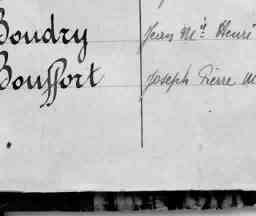 Boudry Jean Mie Henri
Bouffort Joseph Pierre M